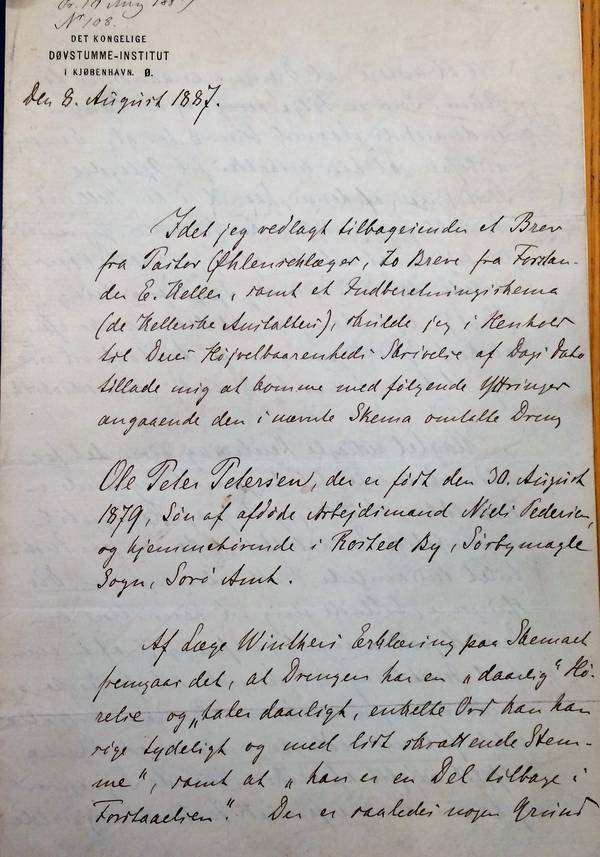 Nº 108.
DET KONGELIGE
DØVSTUMME-INSTITUT
I KJØBENHAVN. Ø.
Den 8. August 1887.
Idet jeg vedlagt tilbagesender et Brev
fra Pastor Øhlenschlæger, to Breve fra Forstan-
der E. Keller, samt et Indberetningsskema
(de Kellerske Anstalter), skulde jeg i Henhold
til Deres Højvelbaarenheds Skrivelse af Dags Dato
tillade mig at komme med følgende Yttringer
angaaende den i nævnte Skema omtalte Dreng
Ole Peter Petersen, der er født den 30. August
1879, Søn af afdøde Arbejdsmand Niels Pedersen,
og hjemmehørende i Rosted By, Sørbymagle
Sogn, Sorø Amt.
Af Læge Winthers Erklæring paa Skemaet
fremgaar det, at Drengen har en „daarlig" Hø-
relse og „taler daarligt, enkelte Ord kan han
sige tydeligt og med lidt skrattende Stem-
me", samt at „han er en Del tilbage i
Forstaaelsen". Der er saaledes nogen Grund